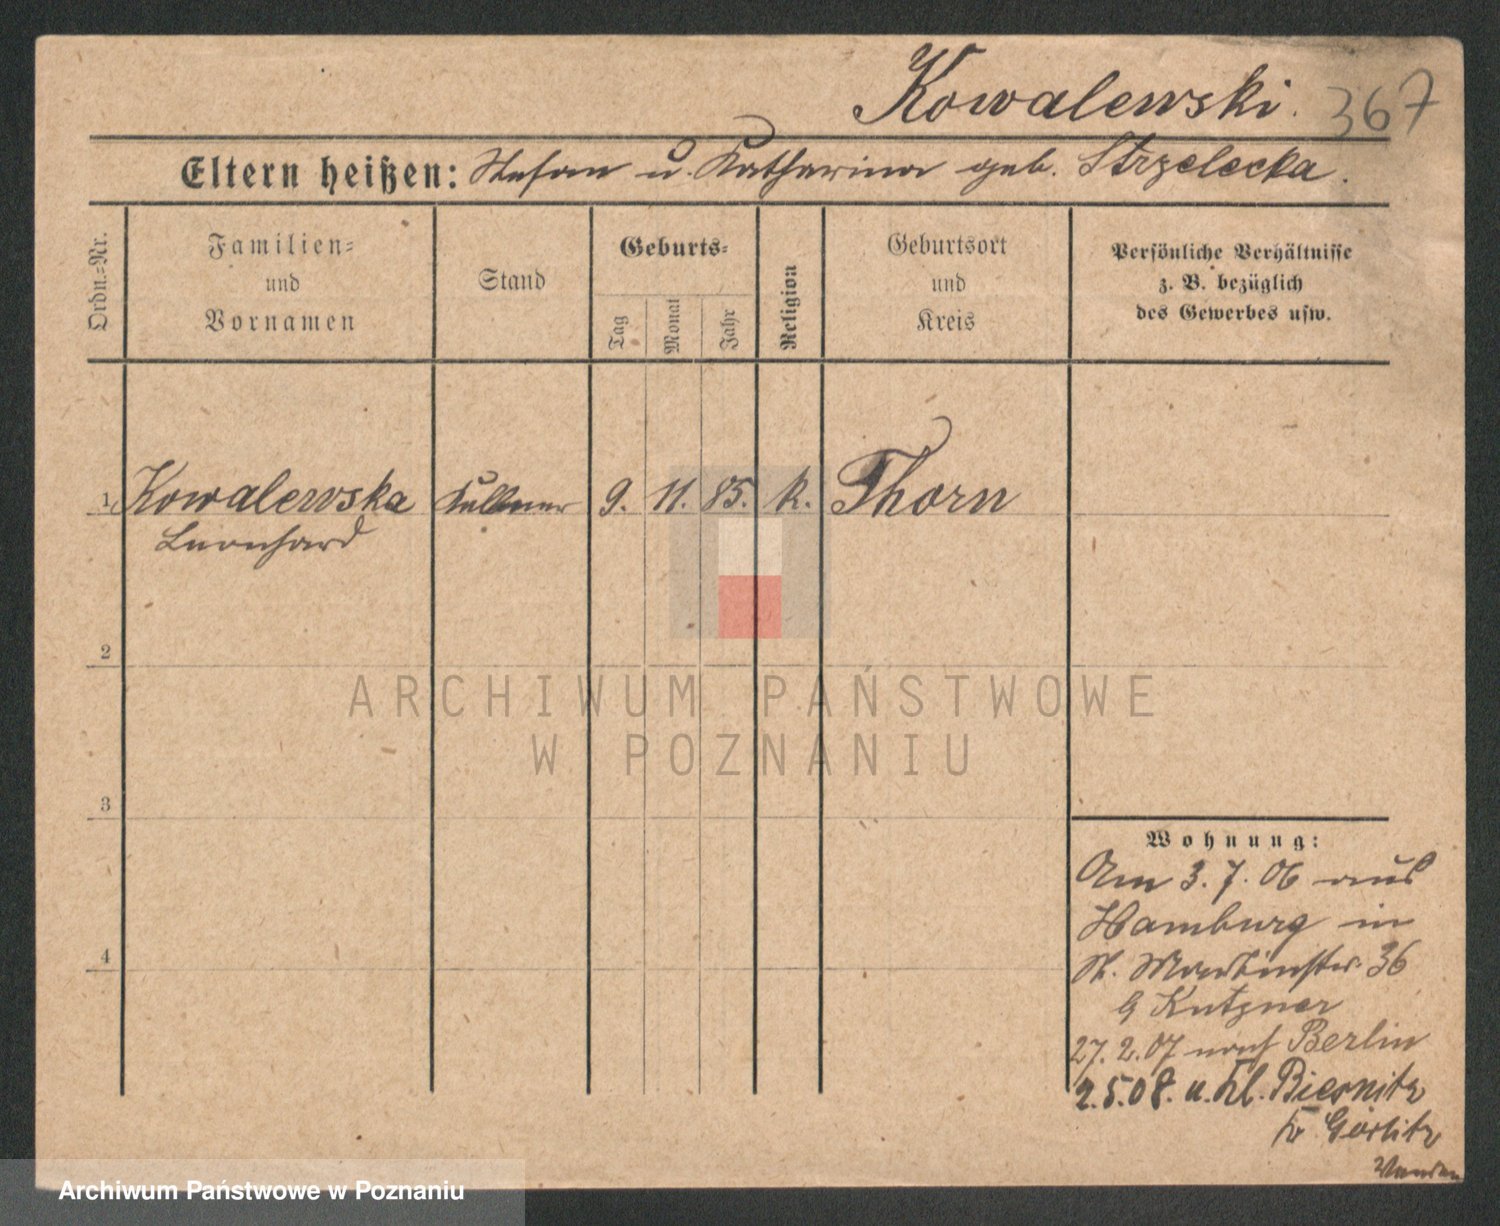 Kowalewski. 367
Eltern heißen: Stefan u. Katharina geb. Strzelecka.
Ordn.-Nr.
Familien-
und
Vornamen
Stand
Geburts-
Tag
Monat
Jahr
Religion
Geburtsort
und
Kreis
Persönliche Verhältnisse
z. B. bezüglich
des Gewerbes usw.
1 Kowalewska Kellner 9. 11. 85. k. Thorn
Leonhard
2
3
4
ARCHIWUM PAŃSTWOWE
W POZNANIU
Wohnung:
Am 3. 7. 06 aus
Hamburg in
St. Martinstr. 36
Kutzner
27. 2. 07 nach Berlin
2.5.08. u. Kl. Biesnitz
Kr Görlitz
Archiwum Państwowe w Poznaniu